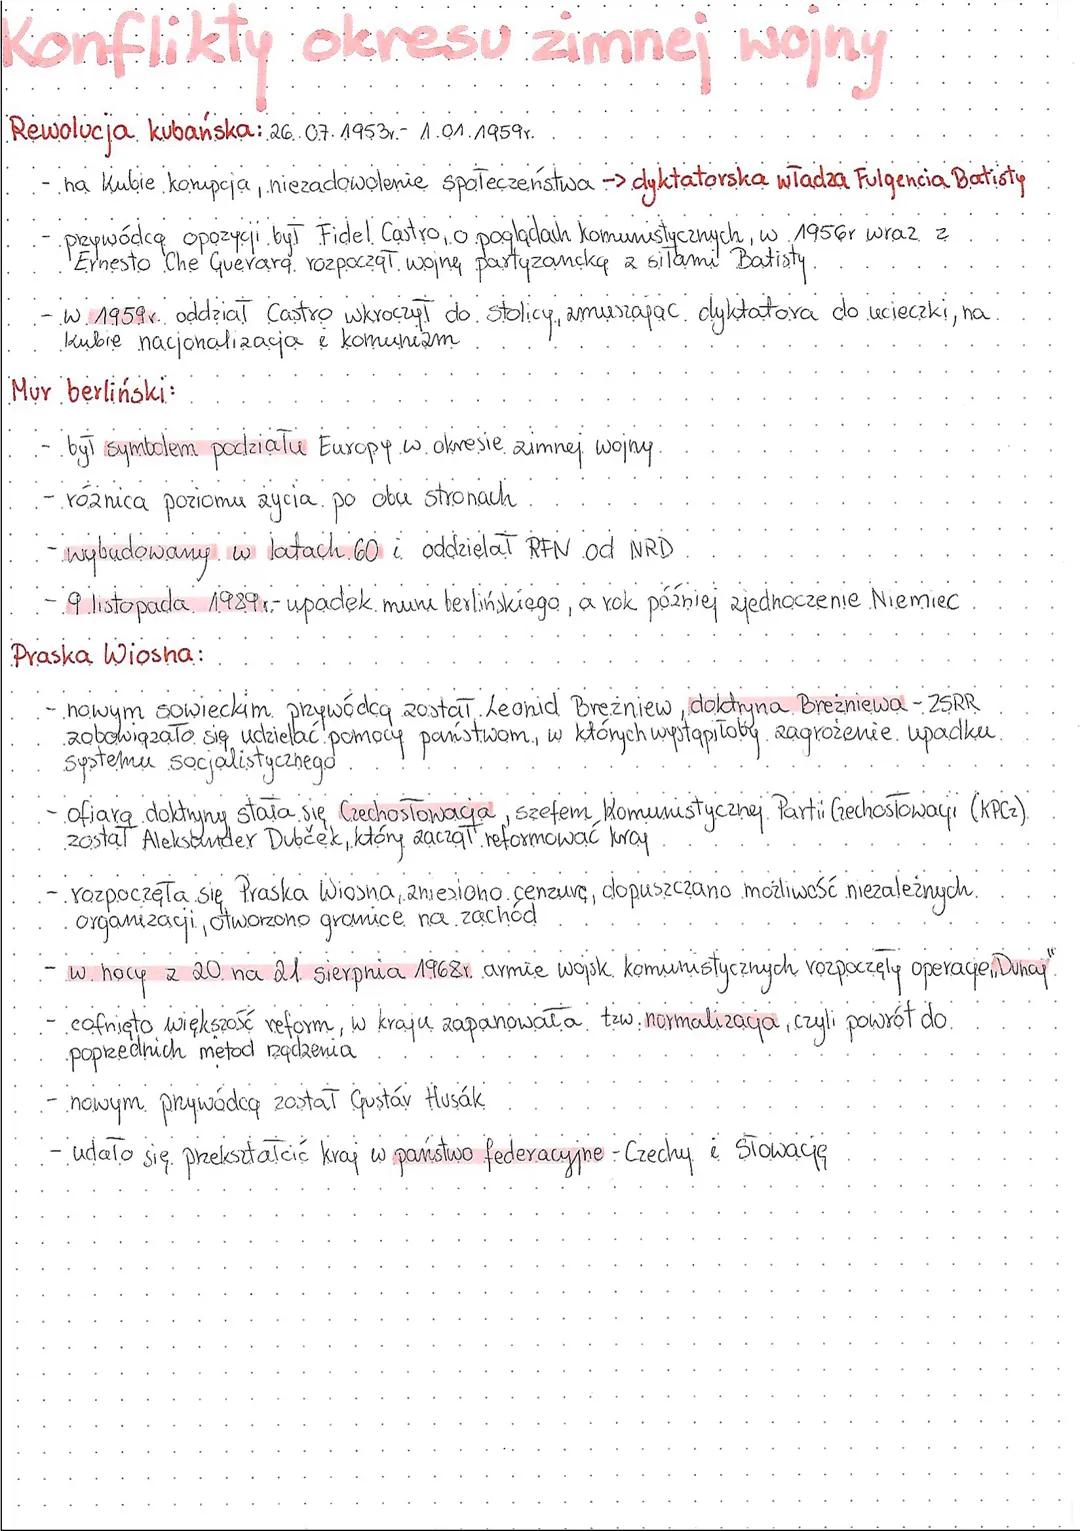 Konflikty okresu zimnej wojny
Rewolucja kubańska: 26.07.1953r.- 1.01.1959r.
- na Kubie korupcja, niezadowolenie społeczeństwa -> dyktatorska władza Fulgencia Batisty
- przywódcą opozycji był Fidel Castro, o poglądach komunistycznych, w 1956r wraz z
Ernesto Che Guevarą rozpoczął wojnę partyzancką z siłami Batisty
- w 1959r. oddział Castro wkroczył do stolicy, zmuszając dyktatora do ucieczki, na
Kubie nacjonalizacja i komunizm
Mur berliński:
- był symbolem podziału Europy w okresie zimnej wojny
- różnica poziomu życia po obu stronach
- wybudowany w latach 60 i oddzielał RFN od NRD
- 9 listopada 1989r.- upadek muru berlińskiego, a rok później zjednoczenie Niemiec
Praska Wiosna:
- nowym sowieckim przywódcą został Leonid Breżniew, doktryna Breżniewa - ZSRR
zobowiązało się udzielać pomocy państwom, w których wystąpiłoby zagrożenie upadku
systemu socjalistycznego
- ofiarą doktryny stała się Czechosłowacja, szefem Komunistycznej Partii Czechosłowacji (KPCz)
został Aleksander Dubček, który zaczął reformować kraj
- rozpoczęła się Praska Wiosna, zniesiono cenzurę, dopuszczano możliwość niezależnych
organizacji, otworzono granice na zachód
- w nocy z 20 na 21 sierpnia 1968r. armie wojsk komunistycznych rozpoczęły operację „Dunaj"
- cofnięto większość reform, w kraju zapanowała tzw. normalizacja, czyli powrót do
poprzednich metod rządzenia
- nowym przywódcą został Gustáv Husák
- udało się przekształcić kraj w państwo federacyjne - Czechy i Słowację